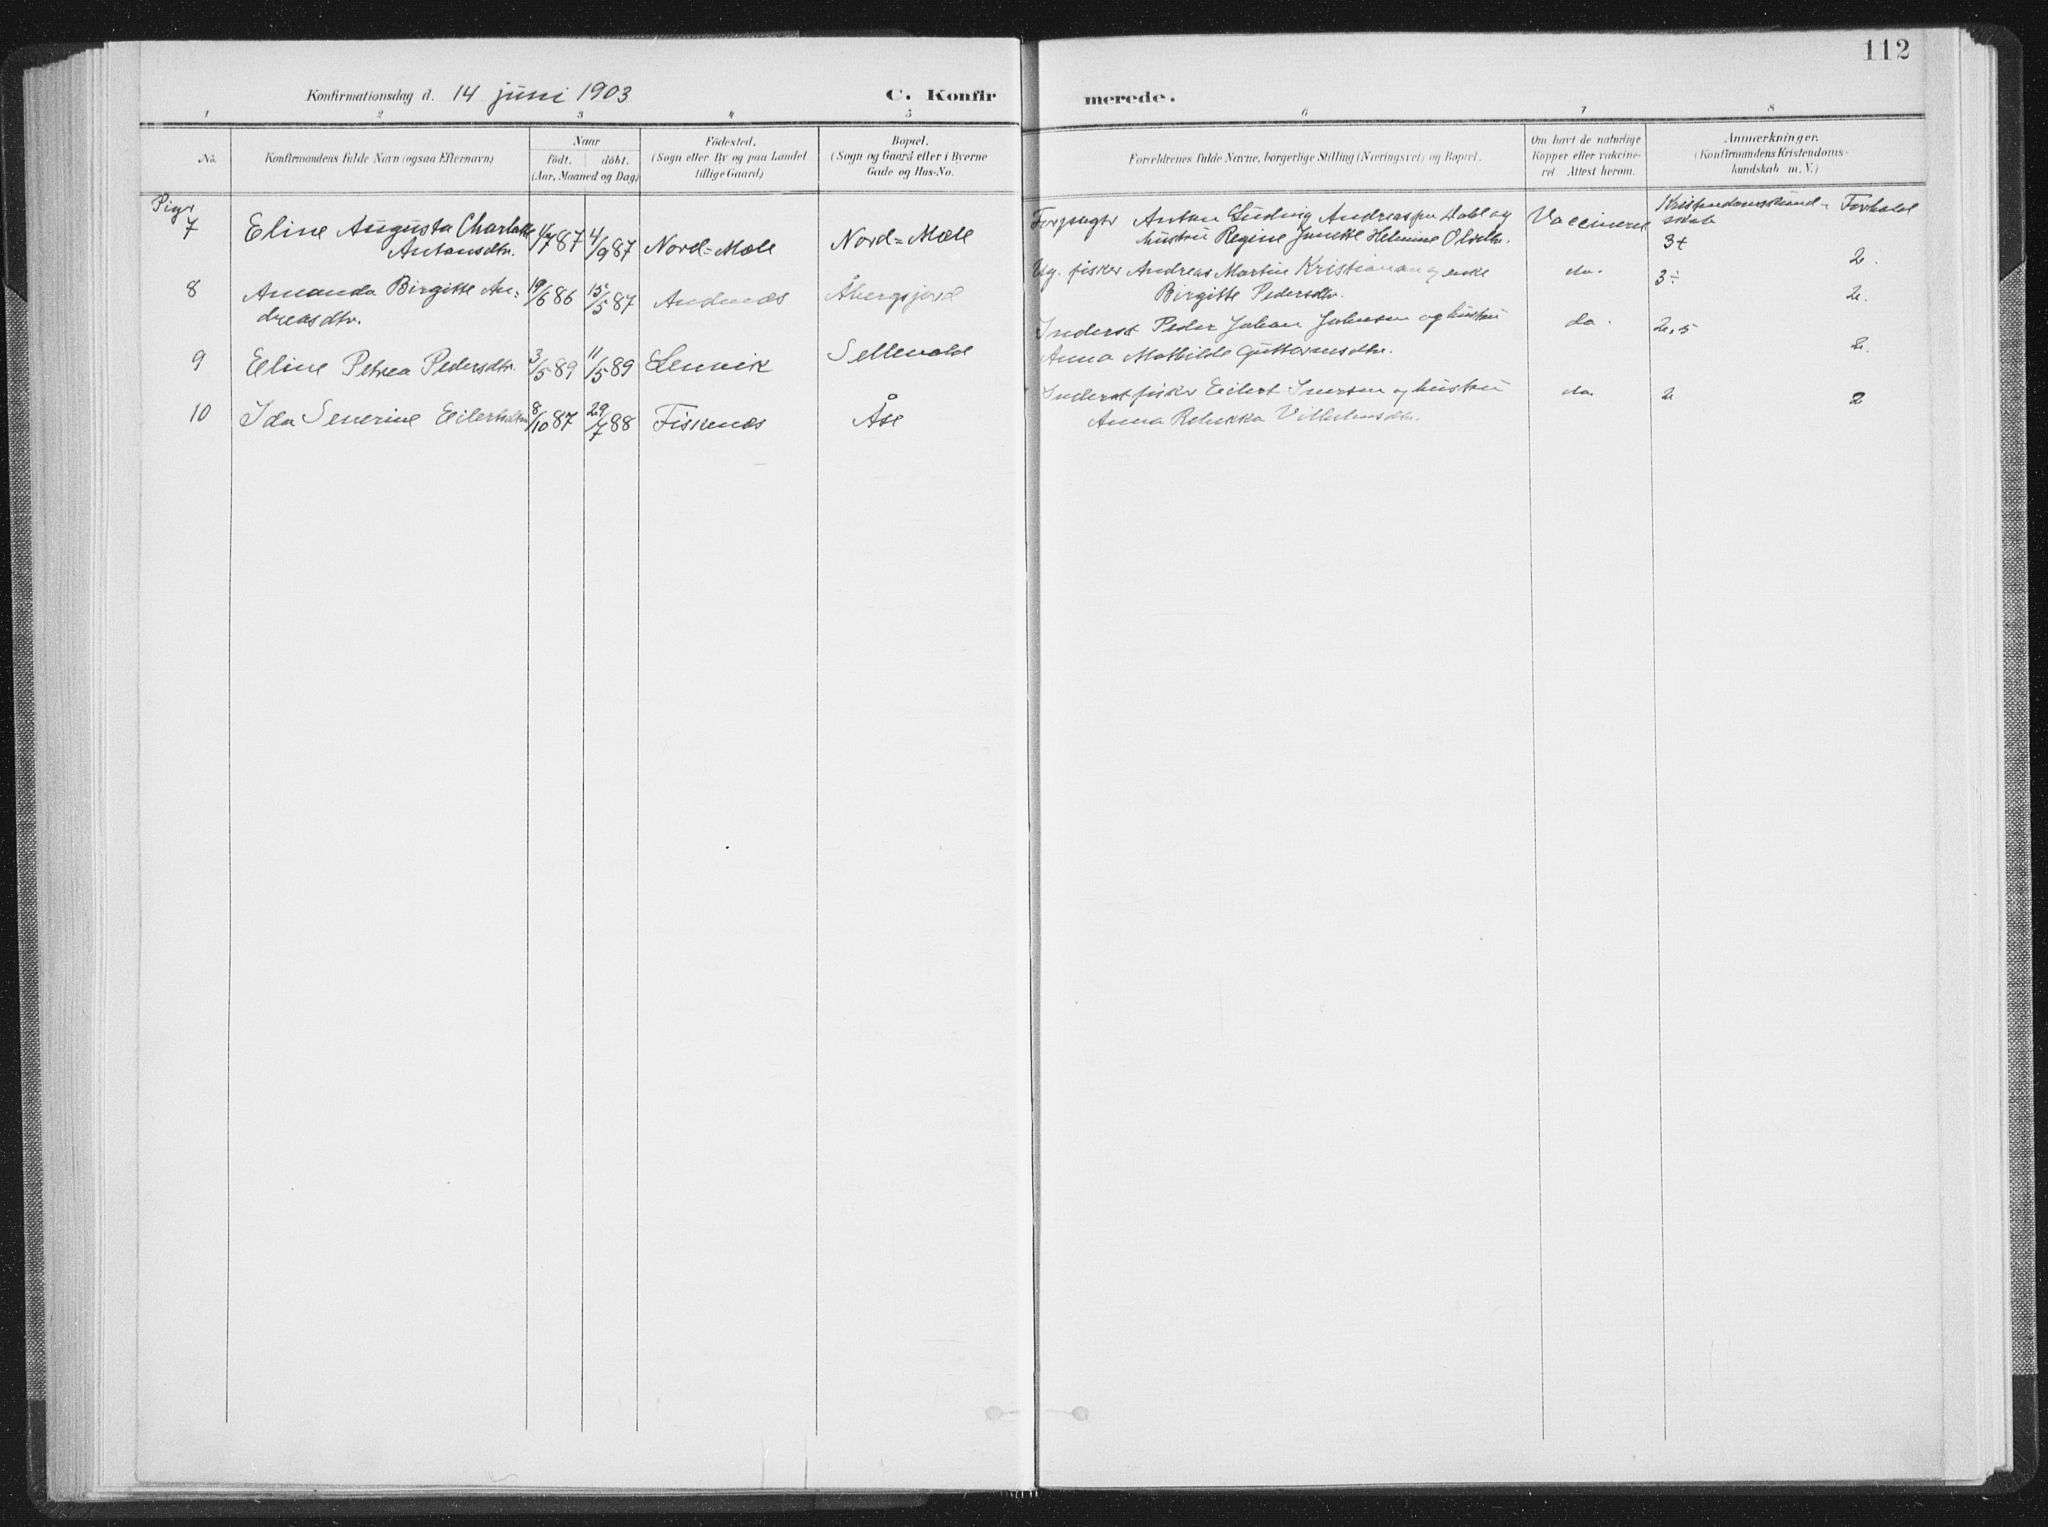 112
Konfirmationsdag d. 14 juni 1903
C. Konfirmerede.
1 2 3 4 5 6 7 8
No.
Konfirmandens fulde Navn (ogsaa Efternavn)
Naar
født. døbt.
(Aar, Maaned og Dag)
Fødested.
(Sogn eller By og paa Landet
tillige Gaard)
Bopæl.
(Sogn og Gaard eller i Byerne
Gade og Hus-No.
Forældrenes fulde Navne, borgerlige Stilling (Næringsvei) og Bopæl.
Om havt de naturlige
Kopper eller vakcine-
ret Attest herom.
Anmærkninger.
(Konfirmandens Kristendoms-
kundskab m. V.)
Kristendomskund- Forhold
skab
Piger
7 Eline Augusta Charlotte 1/7 87 4/9 87 Nord=Mele Nord=Mele Anton Ludvig Andreassen Dahl og Vaccineret
Antonsdtr. hustru Regine Helmine Olsdtr. 3+ 2.
8 Amanda Birgitte An- 19/6 86 15/5 87 Andenes Åbergsjord fisker Andreas Martin Kristiansen og enke do. 3÷
dreasdtr. Birgitte Pedersdtr. 2.
9 Eline Petrea Pedersdtr. 3/5 89 11/5 89 Lenvik Sellevold Inderst Peder Johan Johnsen og hustru do. 2,5
Anna Mathilde Guttormsdtr. 2.
10 Ida Severine Eilertsdtr. 8/10 87 29/7 88 Fiskenes Åse Inderst fisker Eilert Iversen og hustru do. 2 2
Anna Rebekka Vilhelmsdtr.